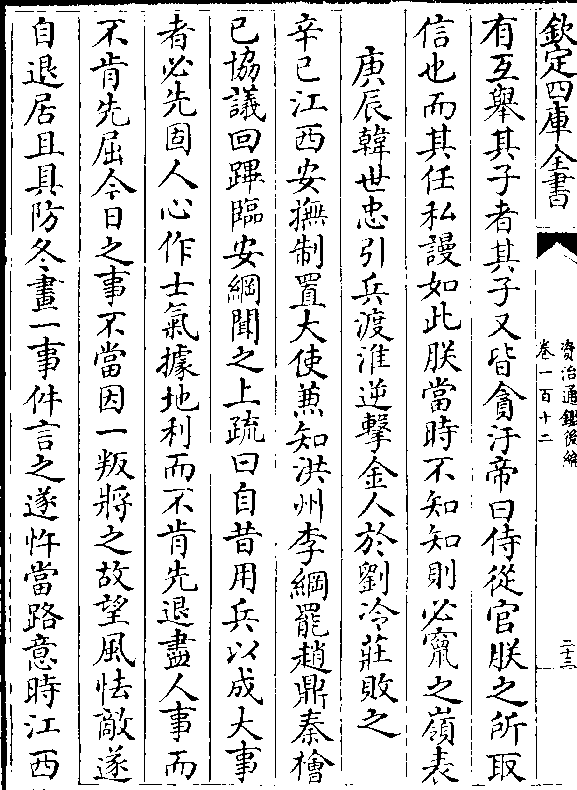 欽定四庫全書
資治通鑑後編
卷一百十二
二十三
有互舉其子者其子又皆貪汙帝曰侍從官朕之所取
信也而其任私謾如此朕當時不知知則必竄之嶺表
庚辰韓世忠引兵渡淮逆擊金人於劉冷莊敗之
辛巳江西安撫制置大使兼知洪州李綱罷趙鼎秦檜
已協議回蹕臨安綱聞之上疏曰自昔用兵以成大事
者必先固人心作士氣據地利而不肯先退盡人事而
不肯先屈今日之事不當因一叛將之故望風怯敵遂
自退居且具防冬畫一事件言之遂忤當路意時江西